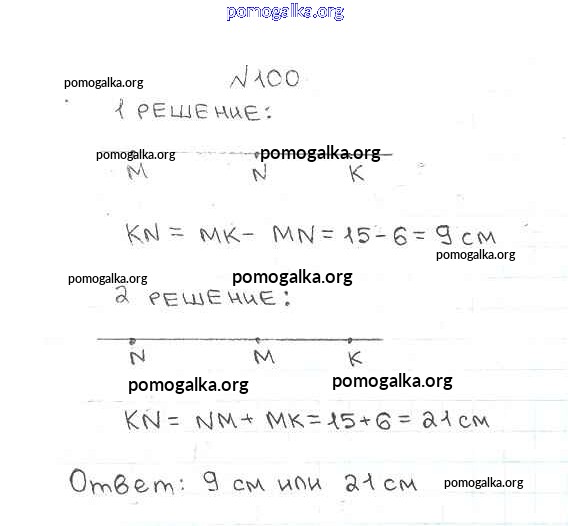 pomogalka.org
№100
pomogalka.org
1 РЕШЕНИЕ:
pomogalka.org pomogalka.org
M N K
KN = MK - MN = 15 - 6 = 9 см
pomogalka.org
pomogalka.org pomogalka.org
2 РЕШЕНИЕ:
N M K
pomogalka.org pomogalka.org
KN = NM + MK = 15 + 6 = 21 см
Ответ: 9 см или 21 см pomogalka.org